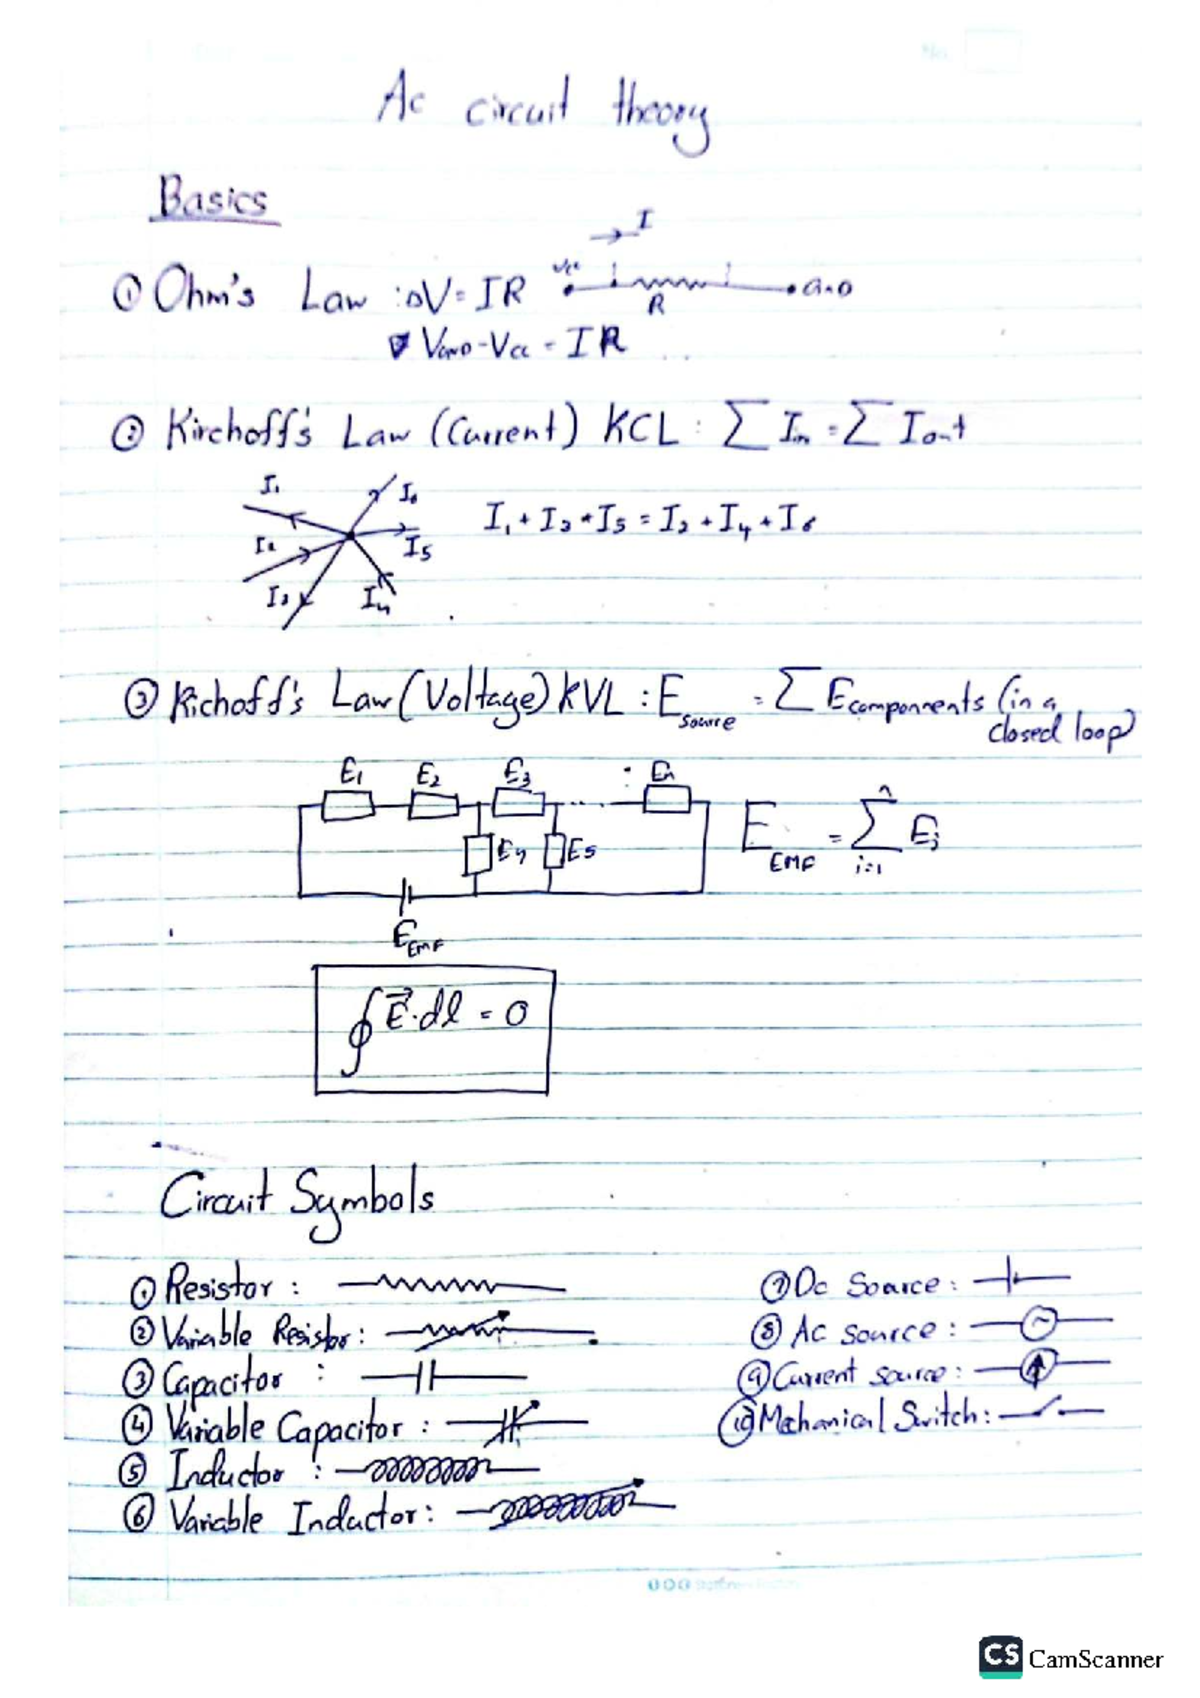 Ac circuit theory
Basics
I
① Ohm's Law : ΔV = IR Vcc R GND
VGND - Vcc = IR
② Kirchoff's Law (Current) KCL : ∑ Iin = ∑ Iout
I1 I6
I1 + I3 + I5 = I2 + I4 + I6
I2 I5
I3 I4
③ Kichoff's Law (Voltage) KVL : Esource = ∑ Ecomponnents (in a closed loop)
E1 E2 E3 ... En
E4 E5
EEMF = ∑ i=1 n Ei
EEMF
∮ E⃗ · dl = 0
Circuit Symbols
① Resistor :
② Variable Resistor :
③ Capacitor :
④ Variable Capacitor :
⑤ Inductor :
⑥ Variable Inductor :
⑦ Dc Source :
⑧ Ac source :
⑨ Current source :
⑩ Mechanical Switch :
CS CamScanner